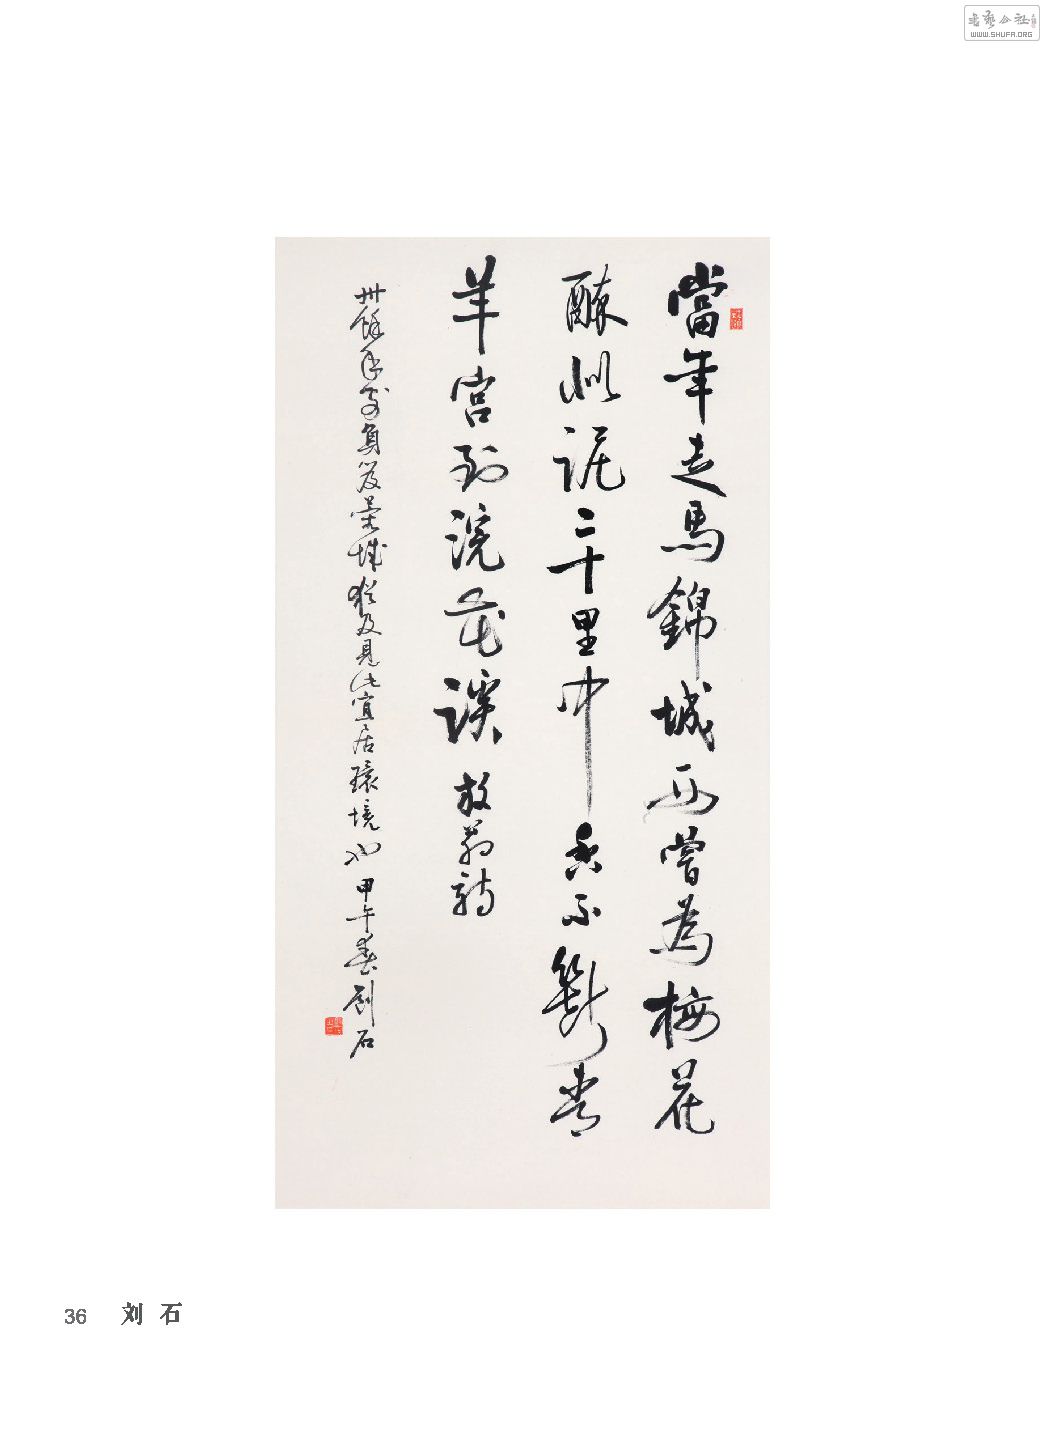 書藝公社
WWW.SHUFA.ORG
當年走馬錦城西嘗為梅花
醉似泥二十里中香不斷青
羊宮到浣花溪 放翁詩
卅餘年前負笈蓉城猶及見此宜居環境也甲午春劉石
36 刘石